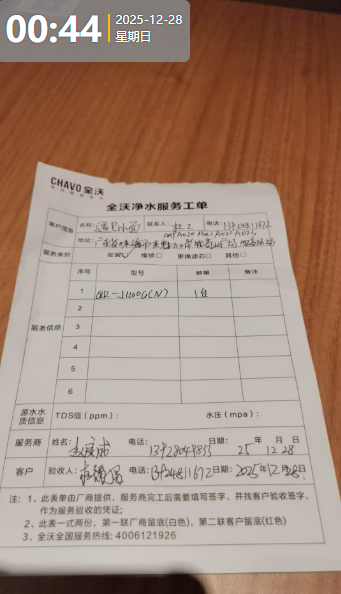 00:44
2025-12-28
星期日
CHAVO 全沃
全沃净水服务工单
客户信息
名称: 遇见小面 联系人: 电话:
地址:
服务类型 安装☑ 维修☐ 更换滤芯☐ 其他☐
服务信息
序号 型号 数量 备注
1 -J1100G(N) 1台
2
3
4
5
6
源水水质信息 TDS值(ppm): 水压(mpa):
服务商 姓名: 电话: 日期: 25年 12月 28日
客户 验收人: 电话: 13924811672 日期: 2025年12月28日
注: 1、此表单由厂商提供,服务商完工后需要填写签字,并找客户验收签字,
作为服务验收的凭证;
2、此表一式两份、第一联厂商留底(白色)、第二联客户留底(红色)
3、全沃全国服务热线: 4006121926